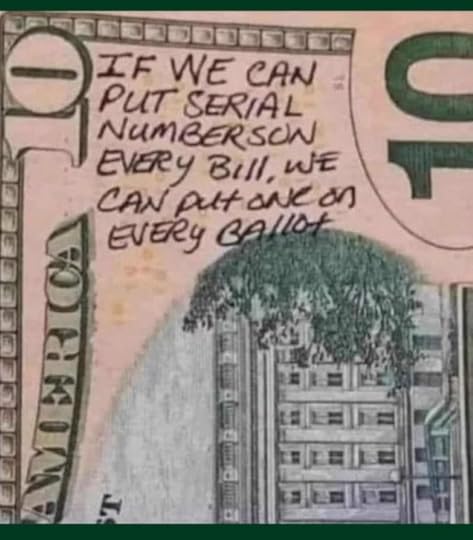 IF WE CAN
PUT SERIAL
NUMBERSON
EVERY BILL, WE
CAN PUT ONE ON
EVERY BALLOT
10
10
AMERICA
ST